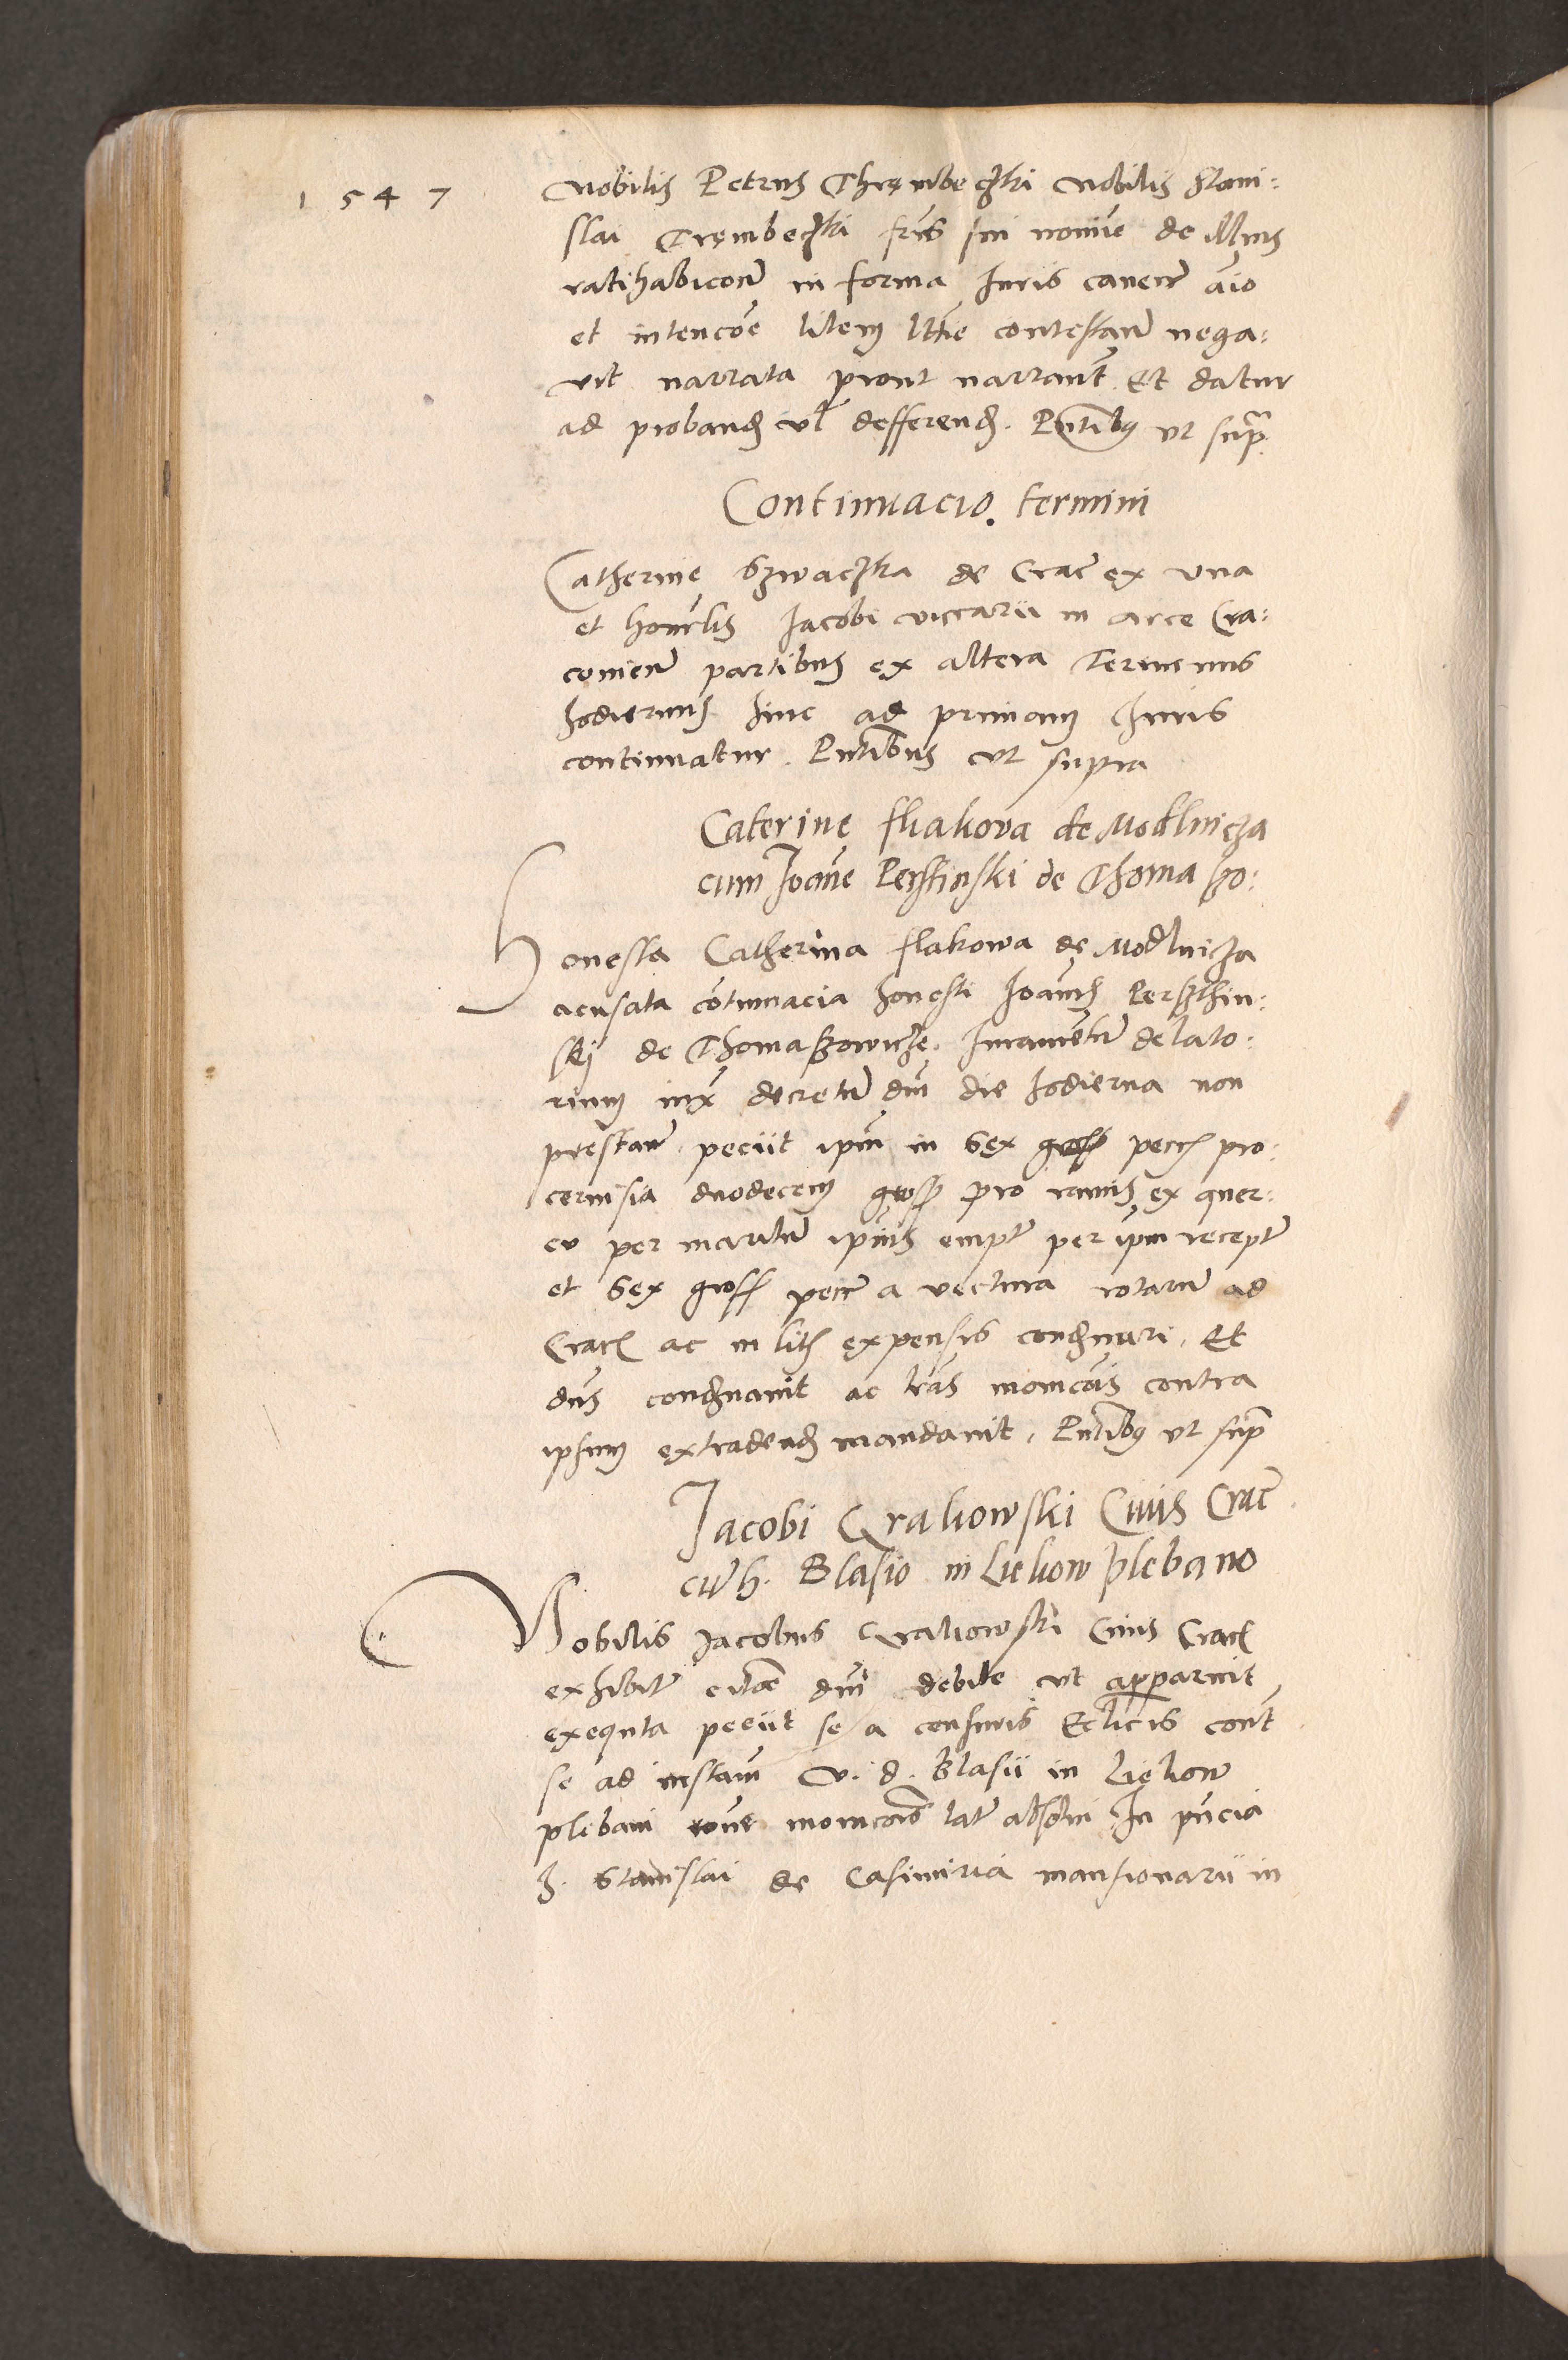 1547
Nobilis Petrus Thrembeczki Nobilis Stani:
slai Trembeczki fris sui nomine de illius
ratihabicone in forma Iuris caven aio
et intencoe litem lthe contestan nega:
vit narrata prout narrant Et datur
ad proband vl defferend. Pntibq vt supra
Continuacio termini
Catherine Szwaczka de Crac ex vna
et honorlis Iacobi viccarii in arce Cra:
covien partibus ex altera Terminus
hodiernus hinc ad primam Iuris
continuatur. Pntibus vt supra
Caterine flakova de Modlnicza
cum Joanne Perstinski de Thomaszo:
Honesta Catherina flakowa de Modlnicza
acusata cotumacia honesti Ioannis Perszthin:
skj de Thomaszowicze. Iuramentu delato:
rium iux decretu dni die hodierna non
prestan peciit ipm in Sex gross pecc pro
cervisia duodecem gross pro ramis ex quer:
cu per maritu ipius empt per ipm recept
et Sex gross pecc a vectura rotaru ad
Crac ac in litis expensis condmnari. Et
dns condmnavit ac lras monicois contra
ipsum extradend mandavit. Pntibq vt supra
Jacobi Grakowski Civis Crac
cu h. Blasio in Leliow plebano
Nobilis Iacobus Grakowski Civis Crac
exhibit citacoe dni debite vt apparuit
exequta peciit se a censuris Eclicis cont
se ad instam v. d. Blasii in Lielow
plebani rone monicois lat absolvi In pncia
h. Stanislai de Casimiria mansionarii in